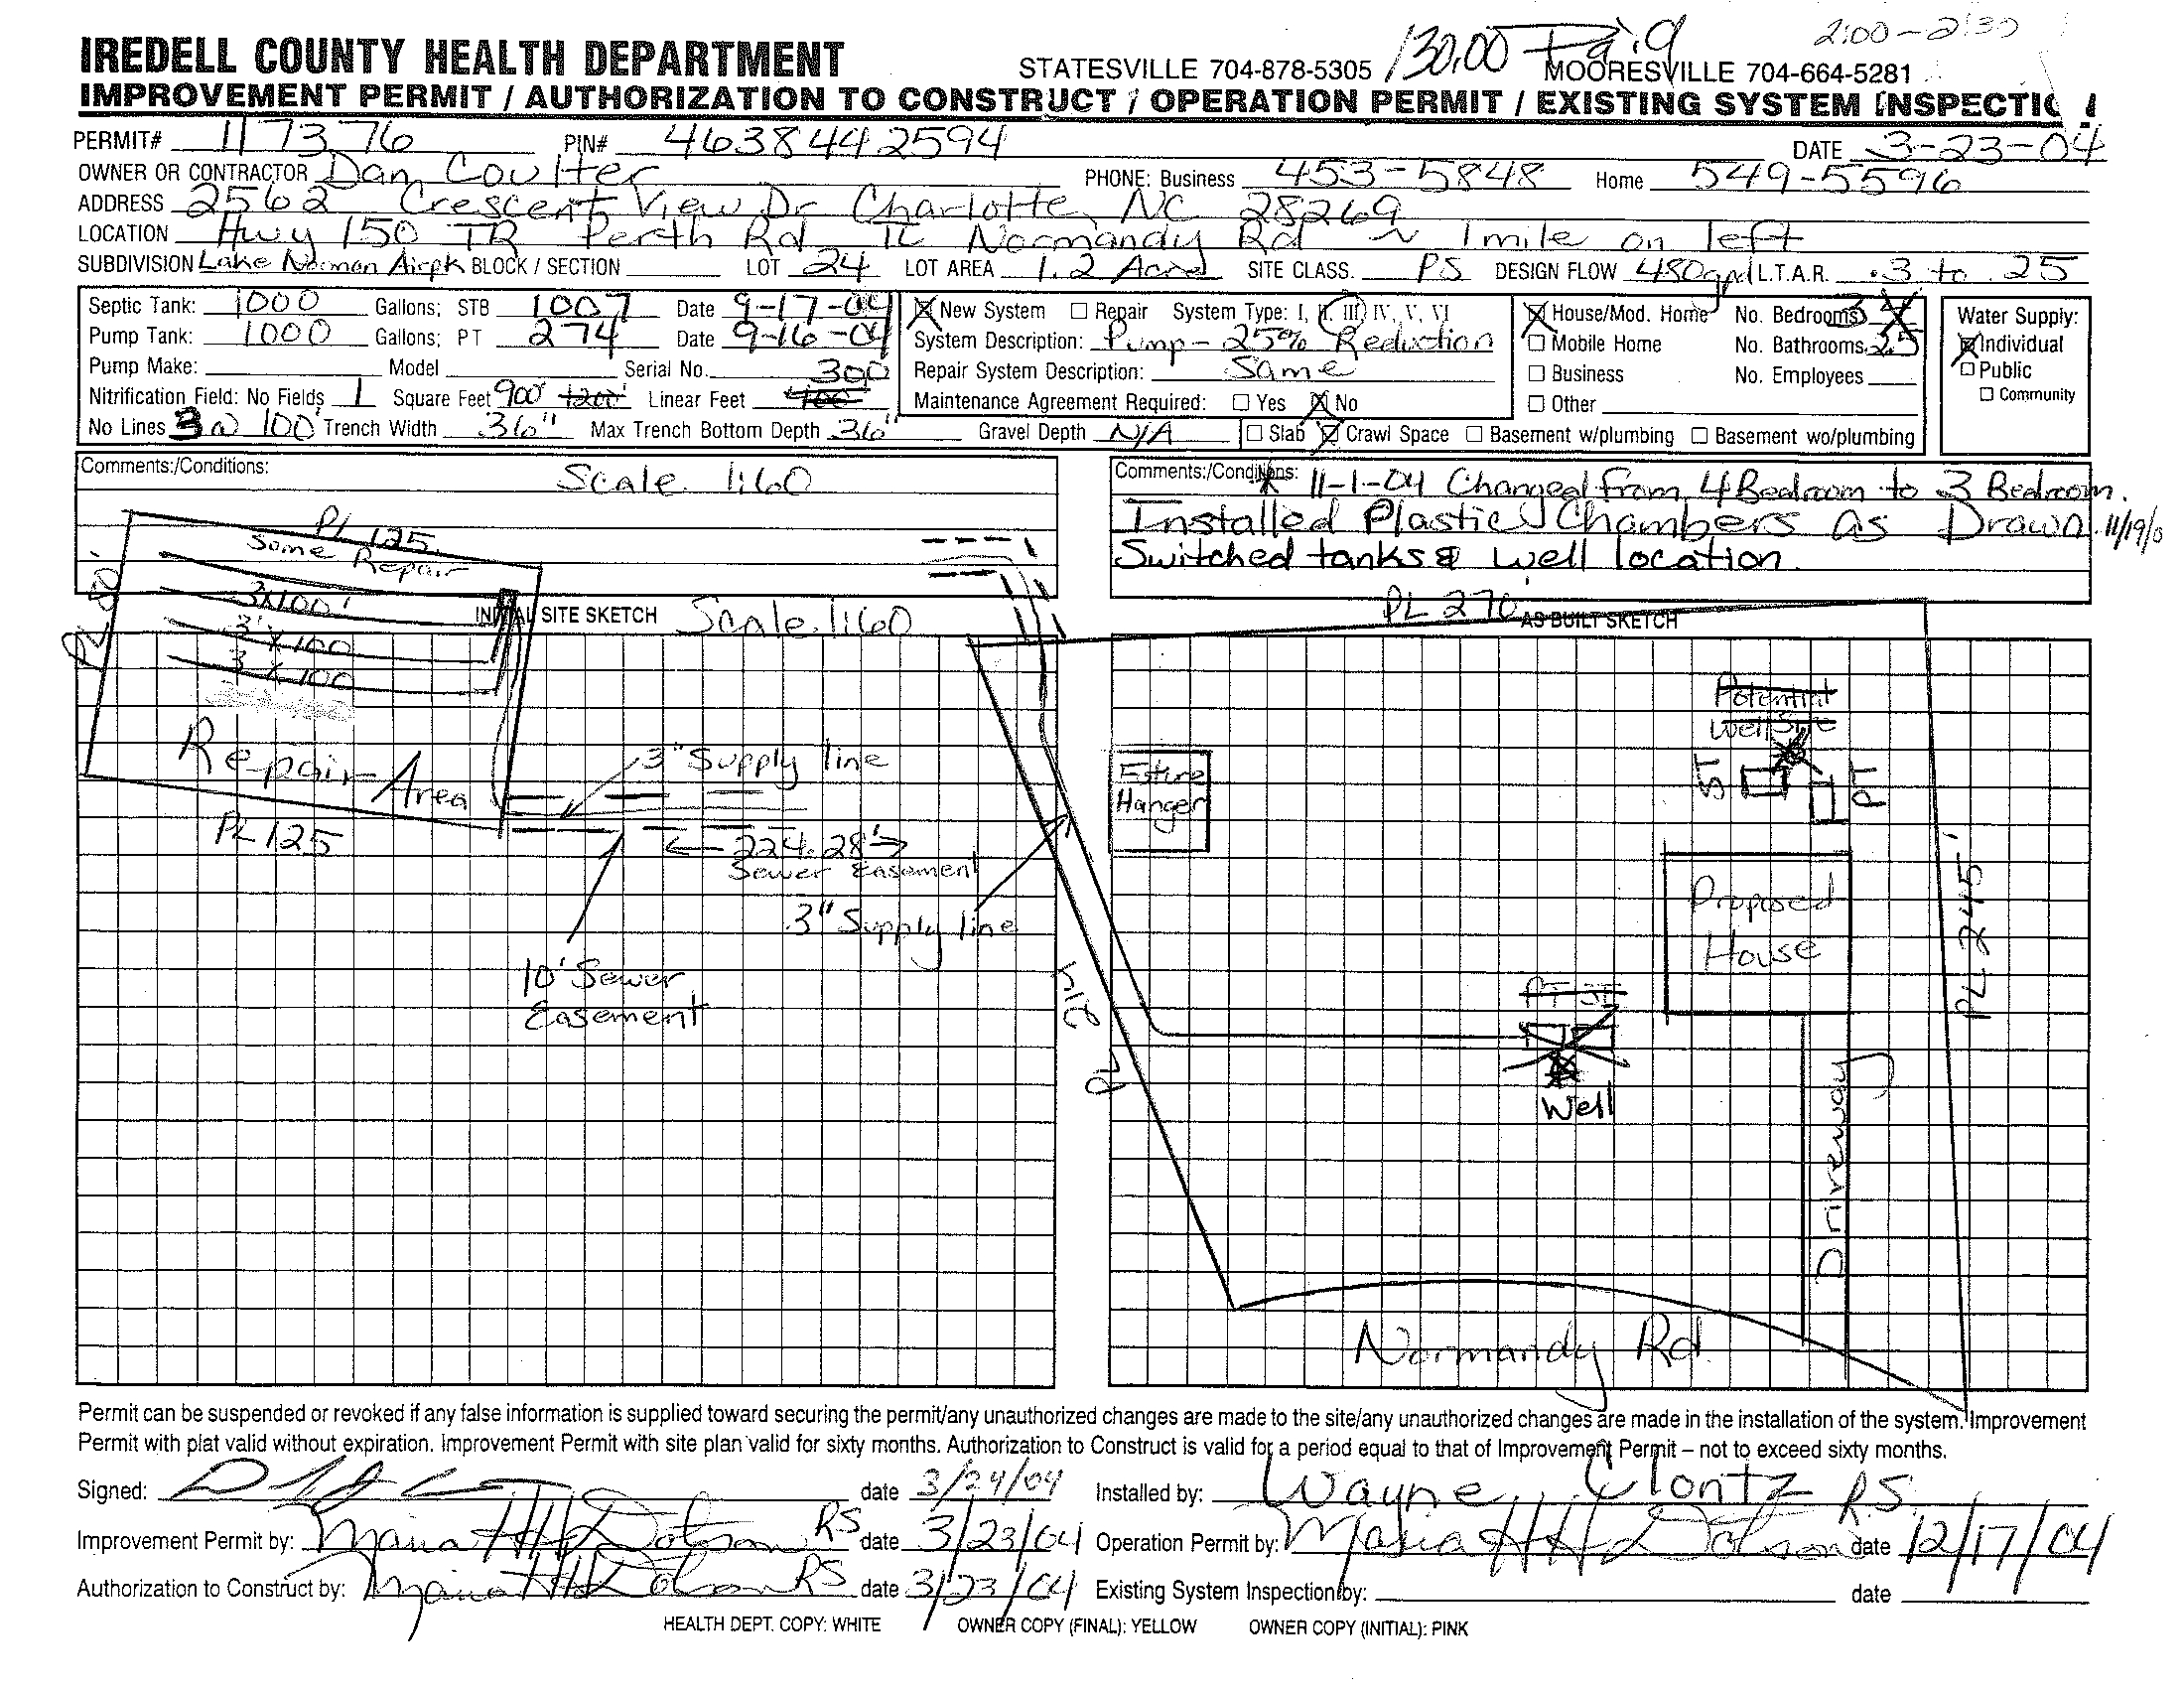 130.00 Paid 2:00-2:30
IREDELL COUNTY HEALTH DEPARTMENT STATESVILLE 704-878-5305 MOORESVILLE 704-664-5281
IMPROVEMENT PERMIT / AUTHORIZATION TO CONSTRUCT / OPERATION PERMIT / EXISTING SYSTEM INSPECTIO
PERMIT# 117376 PIN# 4638442594 DATE 3-23-04
OWNER OR CONTRACTOR Dan Coulter PHONE: Business 453-5848 Home 549-5596
ADDRESS 2562 Crescent View Dr Charlotte, NC 28269
LOCATION Hwy 150 TR Perth Rd TL Normandy Rd ~ 1 mile on left
SUBDIVISION Lake Norman Airpk BLOCK / SECTION LOT 24 LOT AREA 1.2 Acre SITE CLASS. PS DESIGN FLOW 480gpd L.T.A.R. .3 to .25
Septic Tank: 1000 Gallons; STB 1007 Date 9-17-04
Pump Tank: 1000 Gallons; PT 274 Date 9-16-04
Pump Make: Model Serial No.
Nitrification Field: No Fields 1 Square Feet 900' 1200' Linear Feet 300 400
No Lines 3 @ 100' Trench Width 36" Max Trench Bottom Depth 36" Gravel Depth N/A
New System Repair System Type: I, II, III, IV, V, VI
System Description: Pump - 25% Reduction
Repair System Description: Same
Maintenance Agreement Required: Yes No
House/Mod. Home No. Bedrooms 3
Mobile Home No. Bathrooms 2.5
Business No. Employees
Other
Slab Crawl Space Basement w/plumbing Basement wo/plumbing
Water Supply:
Individual
Public
Community
Comments:/Conditions:
Scale 1:60
Comments:/Conditions: 11-1-04 Changed from 4 Bedroom to 3 Bedroom.
Installed Plastic Chambers as Drawn. 11/19/0
Switched tanks & well location.
PL 125
Some Repair
3'X100'
3'X100
3'X100
Repair Area
PL 125
INITIAL SITE SKETCH Scale 1:60
3" Supply line
224.28'
Sewer Easement
3" Supply line
10' Sewer
Easement
PL 270'
AS BUILT SKETCH
Potential
Well Site
ST
PT
Existing
Hanger
Proposed
House
PL 245'
PL 214
PT ST
Well
Driveway
Normandy Rd.
Permit can be suspended or revoked if any false information is supplied toward securing the permit/any unauthorized changes are made to the site/any unauthorized changes are made in the installation of the system. Improvement
Permit with plat valid without expiration. Improvement Permit with site plan valid for sixty months. Authorization to Construct is valid for a period equal to that of Improvement Permit – not to exceed sixty months.
Signed: date 3/24/04 Installed by: Wayne Clontz
Improvement Permit by: Maria HH Dotson RS date 3/23/04 Operation Permit by: Maria HH Dotson R.S. date 12/17/04
Authorization to Construct by: Maria HH Dotson RS date 3/23/04 Existing System Inspection by: date
HEALTH DEPT. COPY: WHITE OWNER COPY (FINAL): YELLOW OWNER COPY (INITIAL): PINK